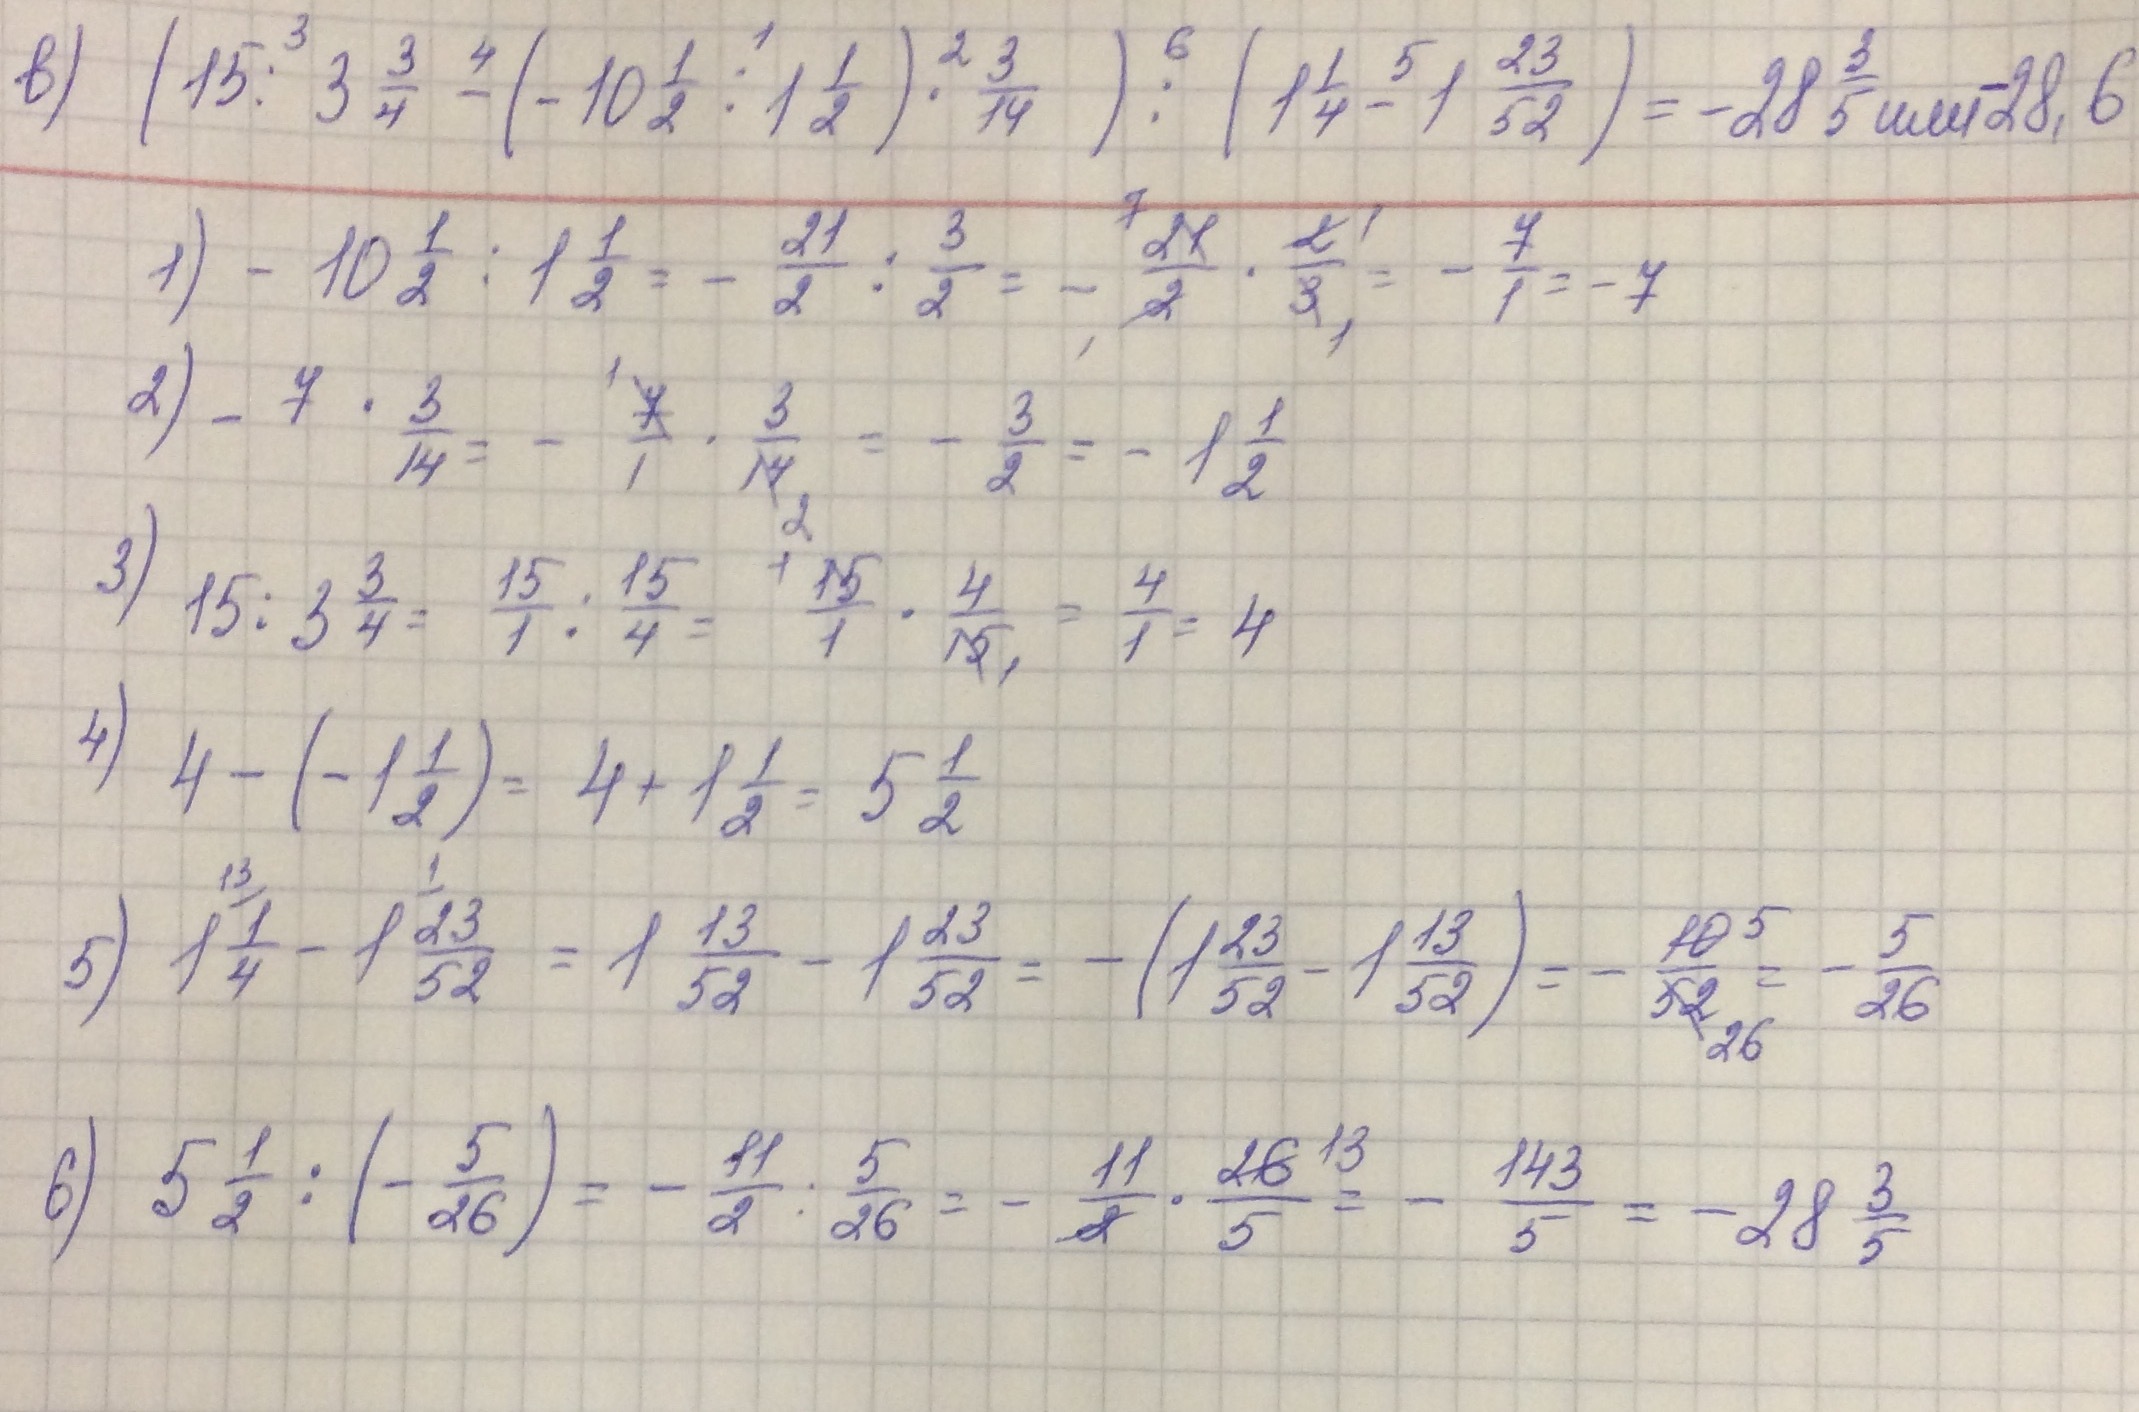 в) (15 :³ 3 3/4 -⁴ (-10 1/2 :¹ 1 1/2) ·² 3/14) :⁶ (1 1/4 -⁵ 1 23/52) = -28 3/5 или -28,6
1) - 10 1/2 : 1 1/2 = - 21/2 : 3/2 = - ⁷21/2₁ · 2¹/3₁ = - 7/1 = - 7
2) - 7 · 3/14 = - ¹7/1 · 3/14₂ = - 3/2 = - 1 1/2
3) 15 : 3 3/4 = 15/1 : 15/4 = ¹15/1 · 4/15₁ = 4/1 = 4
4) 4 - (-1 1/2) = 4 + 1 1/2 = 5 1/2
5) 1 ¹³1/4 - 1 ¹23/52 = 1 13/52 - 1 23/52 = - (1 23/52 - 1 13/52) = - 10⁵/52₂₆ = - 5/26
6) 5 1/2 : (- 5/26) = - 11/2 : 5/26 = - 11/2 · 26¹³/5 = - 143/5 = - 28 3/5